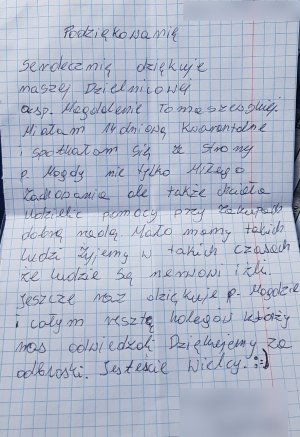 Podziękowanię
Serdecznię dziękuje
naszej Dzielnicową
asp. Magdalenie Tomaszewskiej.
Miałam 14 dniową Kwarantanne
i spotkałam się ze strony
p. Magdy nie tylko Miłego
Zachowania ale także chciała
udzielić pomocy przy zakupach
dobrą radą Mało mamy takich
ludzi Żyjemy w takich czasach
że ludzie są nerwowi i źli.
Jeszcze raz dziękuje p. Magdzie
i całym resztę kolegów którzy
nas odwiedzali Dziękujemy za
odblaski. Jesteście Wielcy. :-)